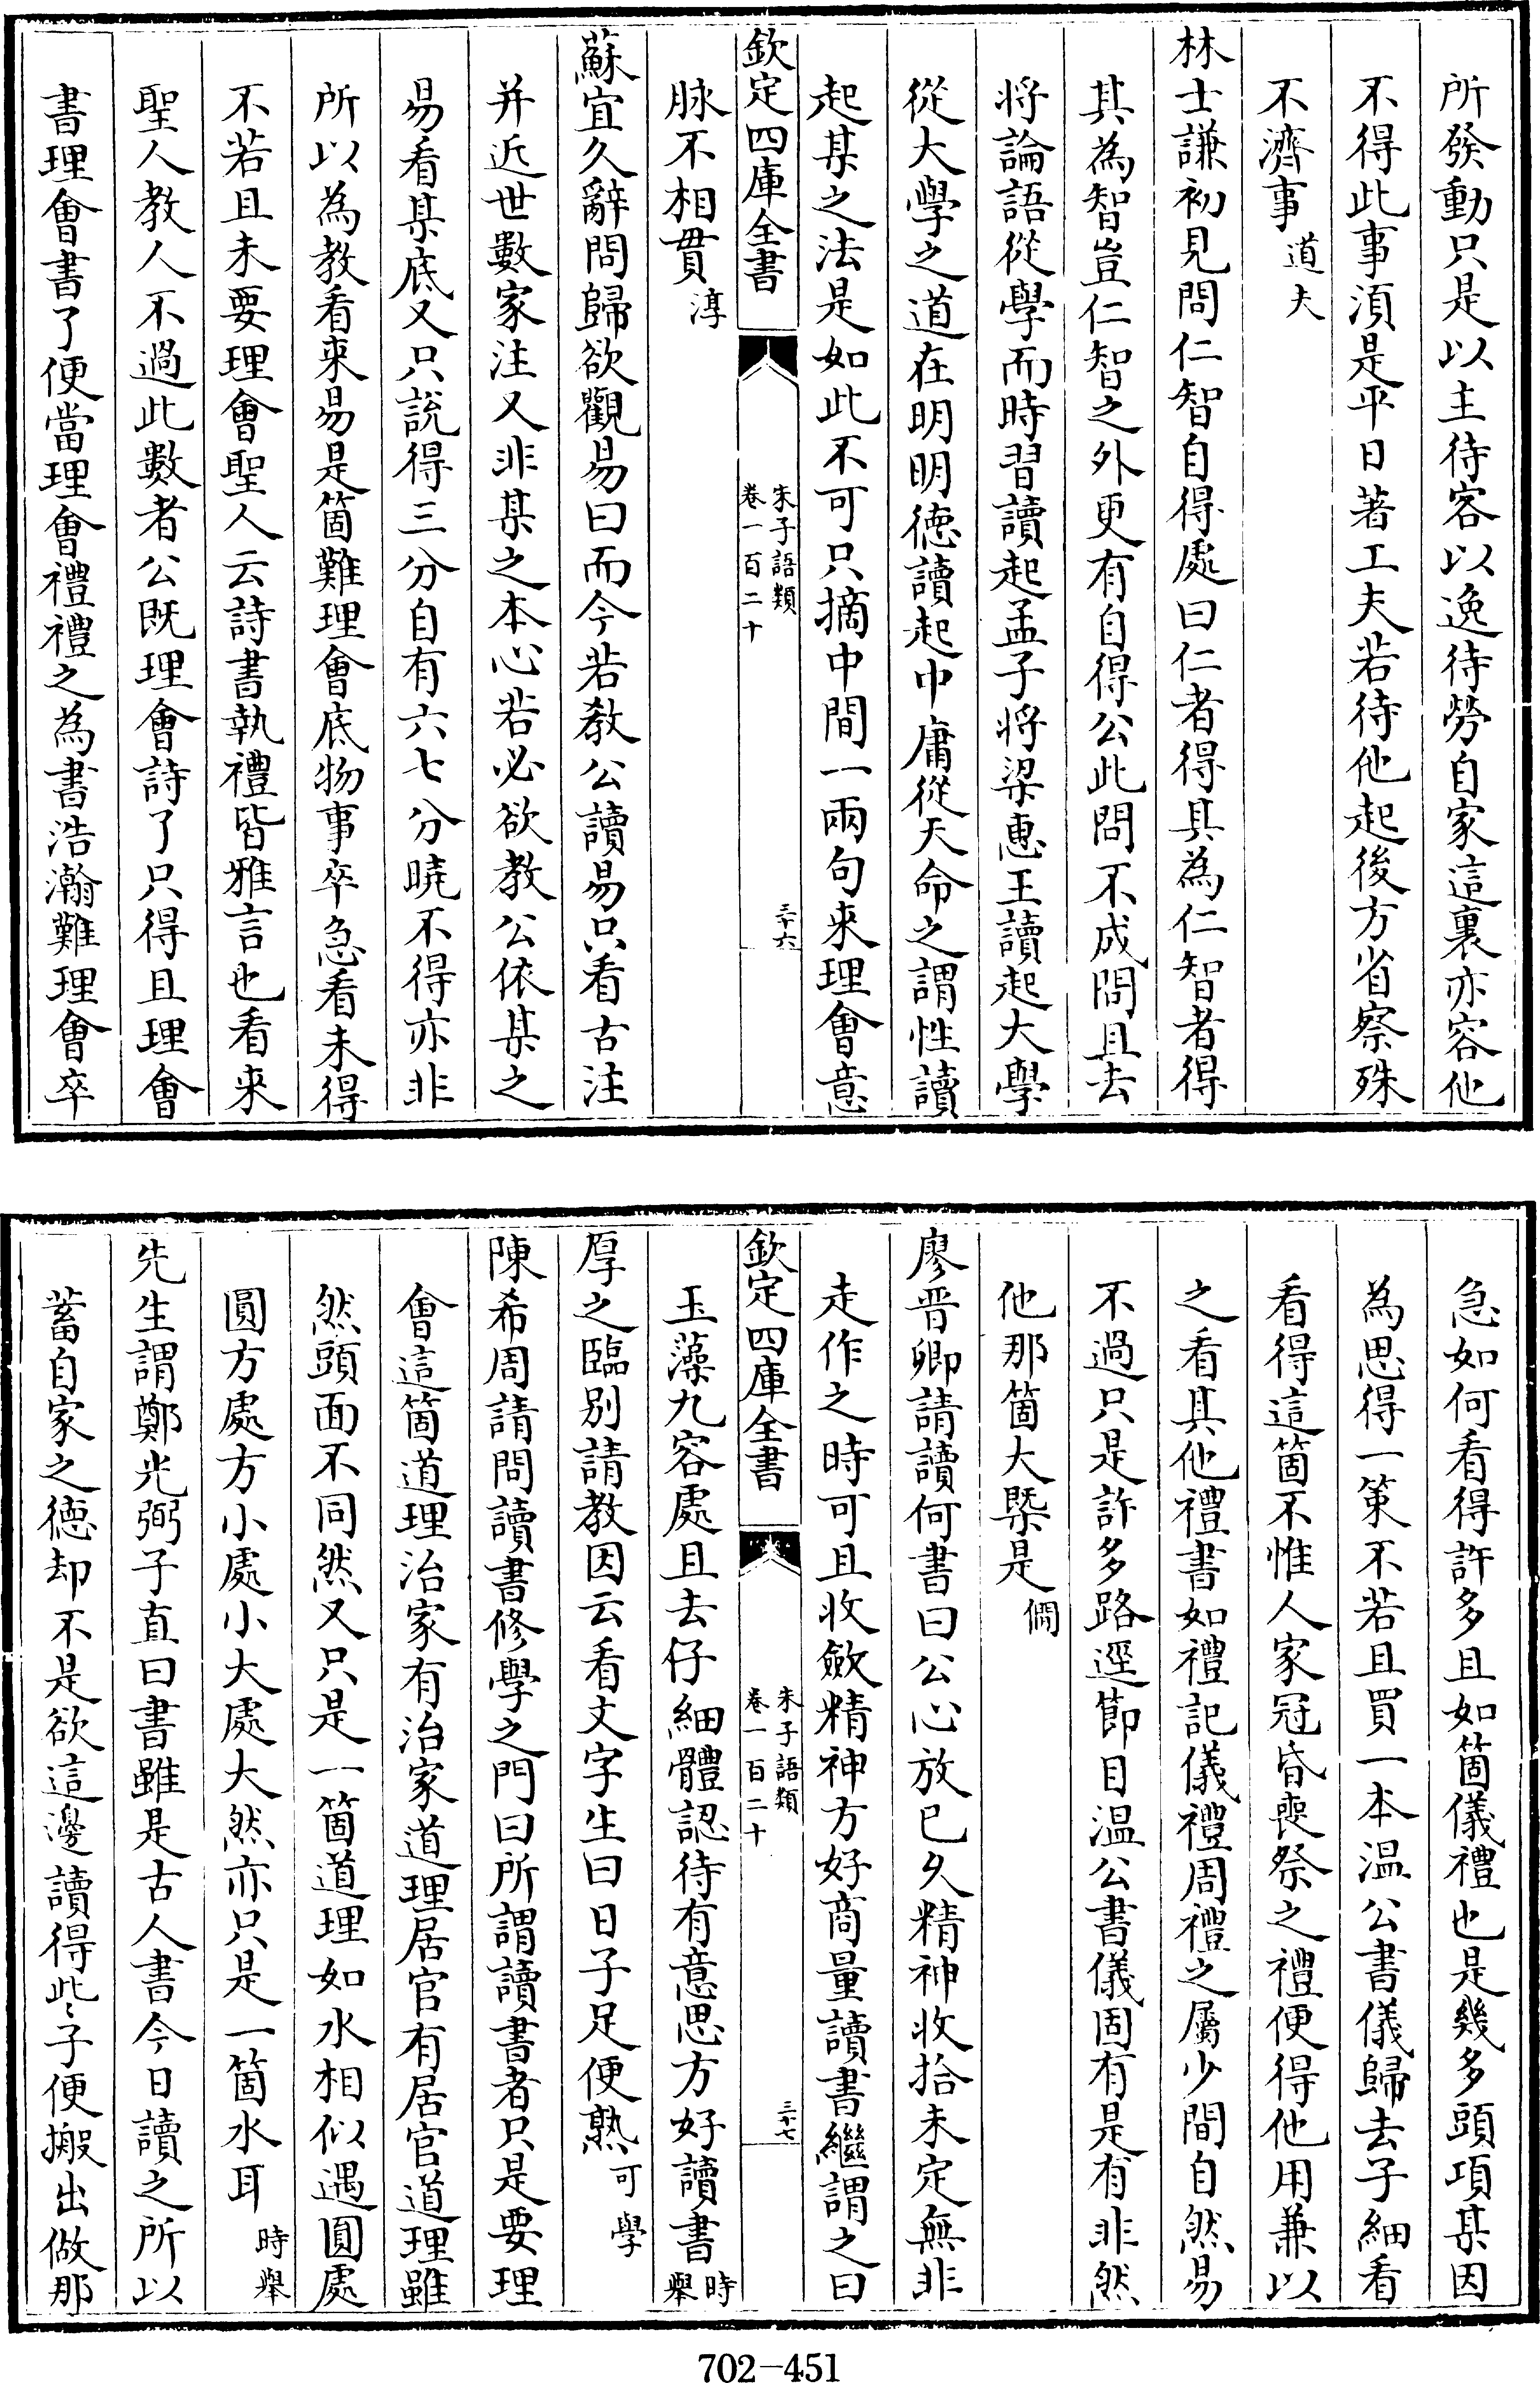 所發動只是以主待客以逸待勞自家這裏亦容他
不得此事湏是平日著工夫若待他起後方省察殊
不濟事道夫
林士謙初見問仁智自得處曰仁者得其為仁智者得
其為智豈仁智之外更有自得公此問不成問且去
將論語從學而時習讀起孟子將梁惠王讀起大學
從大學之道在明明德讀起中庸從天命之謂性讀
起某之法是如此不可只摘中間一兩句來理會意
欽定四庫全書
朱子語類
卷一百二十
三十六
脉不相貫淳
蘇宜久辭問歸欲觀易曰而今若教公讀易只看古注
并近世數家注又非某之本心若必欲教公依某之
易看某底又只說得三分自有六七分曉不得亦非
所以為教看來易是箇難理會底物事卒急看未得
不若且未要理會聖人云詩書執禮皆雅言也看來
聖人教人不過此數者公既理會詩了只得且理會
書理會書了便當理會禮禮之為書浩瀚難理會卒
急如何看得許多且如箇儀禮也是幾多頭項某因
為思得一策不若且買一本溫公書儀歸去子細看
看得這箇不惟人家冠昏喪祭之禮便得他用兼以
之看其他禮書如禮記儀禮周禮之屬少間自然易
不過只是許多路逕節目溫公書儀固有是有非然
他那箇大槩是僩
廖晋卿請讀何書曰公心放已久精神收拾未定無非
走作之時可且收斂精神方好商量讀書繼謂之曰
欽定四庫全書
朱子語類
卷一百二十
三十七
玉藻九容處且去仔細體認待有意思方好讀書時舉
厚之臨別請教因云看文字生曰日子足便熟可學
陳希周請問讀書修學之門曰所謂讀書者只是要理
會這箇道理治家有治家道理居官有居官道理雖
然頭面不同然又只是一箇道理如水相似遇圓處
圓方處方小處小大處大然亦只是一箇水耳時舉
先生謂鄭光弼子直曰書雖是古人書今日讀之所以
蓄自家之德却不是欲這邊讀得些子便搬出做那
702-451